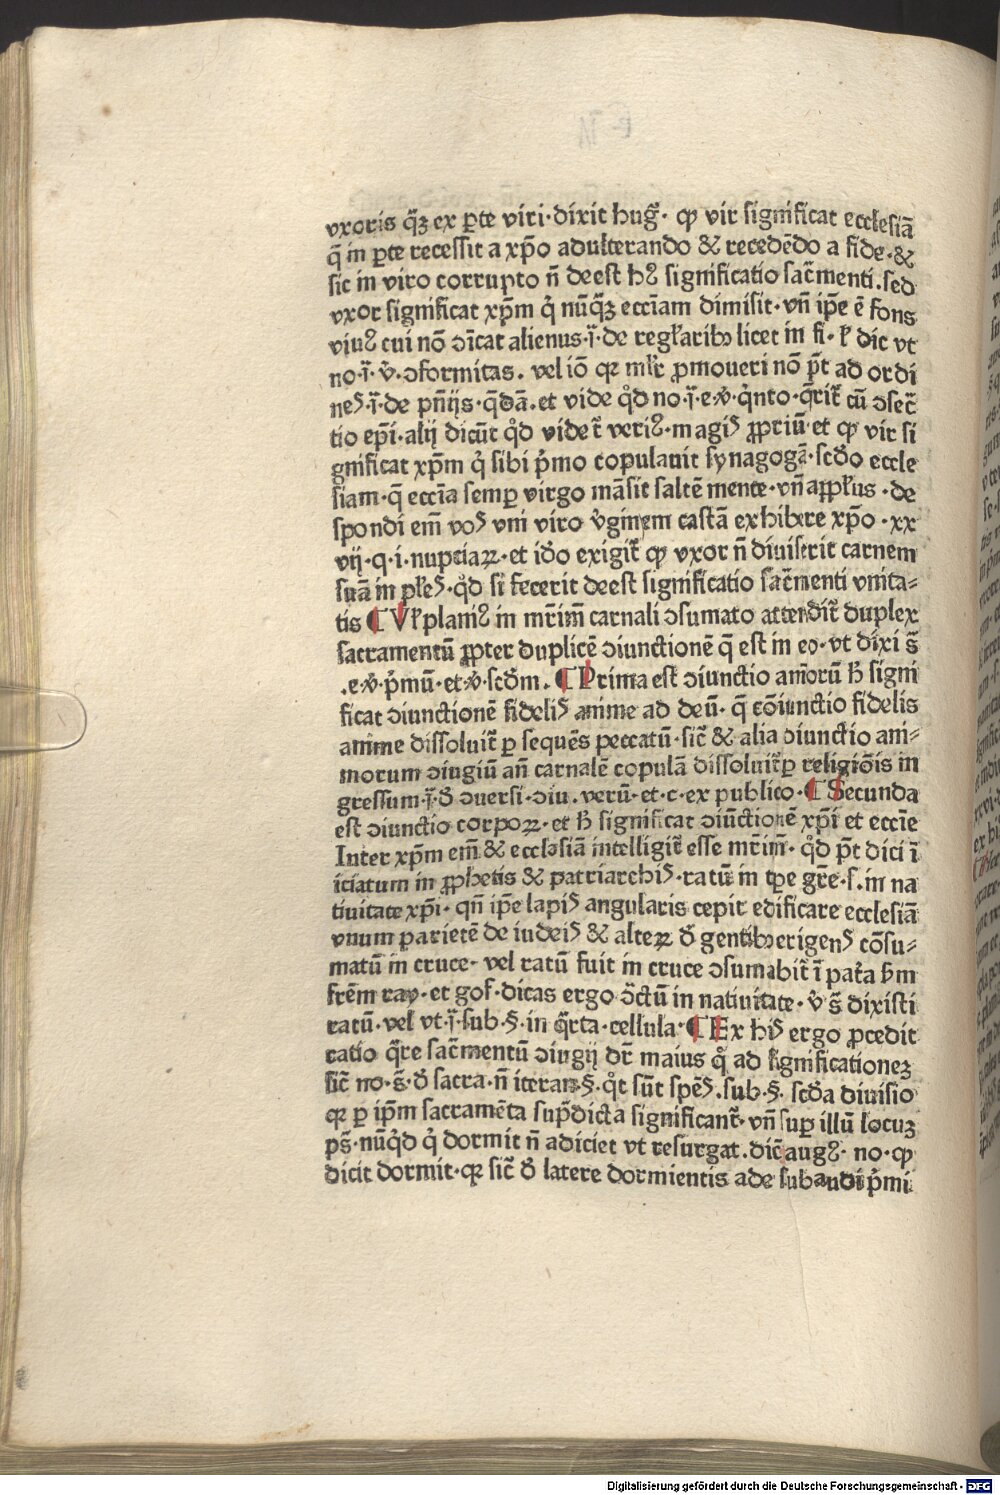 vxoris q̄ꝫ ex ꝑte viri·dixit hug̃· ꝙ vir significat ecclesiā
q̄ in ꝑte recessit a xp̄o adulterando & recedēdo a fide·&
sic in viro corrupto n̄ deest hꝰ significatio sac̄menti.sed
vxor significat xp̄m q̇ nūq̄ꝫ ecc̄iam dimisit·vn̄ ip̄e ē fons
viuꝰ cui nō ↄīcat alienus·j̄·de regl̄aribꝫ licet in fi·ł dic vt
no·j̄·v̇·ↄformitas. vel iō qꝛ ml̄r ꝓmoueri nō p̄t ad ordi
neꝭ·j̄·de pn̄ijs·q̄dā.et vide qd̊ no·j̄·e·v̇·q̇nto·q̄rit̄ cū ↄsec̄
tio ep̄i·alij dicūt qd̊ videt̄ veriꝰ·magiꝭ ꝓpriū·et ꝙ vir si
gnificat xp̄m q̇ sibi ṗmo copulauit synagogā·scd̊o eccle
siam·q̄ ecc̄ia semꝑ virgo māsit saltē mente·vn̄ apl̄us ·de
spondi em̄ voꝭ vni viro v̇ginem castā exhibere xp̄o ·xx
vij·q·i·nuptiaꝝ·et id̊o exigit̄ ꝙ vxor n̄ diuiserit carnem
suā in pl̄eꝭ·qd̊ si fecerit deest significatio sac̄menti vnita-
tis ¶ Vł planiꝰ in mr̄im̄ carnali ↄsumato attendit̄ duplex
sacramentū ꝓpter duplicē ↄiunctionē q̄ est in eo·vt dixi s̄
.e·v̇·ṗmū·et·v̇·scd̊m. ¶ Prima est ↄiunctio aīorū h̄ signi
ficat ↄiunctionē fideliꝭ anime ad deū· q̄ cōiunctio fidelis
anime dissoluit̄ ꝑ sequēs peccatū·sic̄ & alia ↄiunctio ani-
morum ↄiugiū an̄ carnalē copulā dissoluit̄ ꝑ religiōis in
gressum·j̄·d̊ ↄuersi·ↄiu.verū·et·c·ex publico·¶ Secunda
est ↄiunctio corpoꝝ·et h̄ significat ↄiūctionē xp̄i et ecc̄ie
Inter xp̄m em̄ & ecclesiā intelligit̄ esse mr̄im̄· qd̊ p̄t dici ī
iciatum in ꝓphetis & patriarchiꝭ·ratū in tp̄e gr̄e·s.in na
tiuitate xp̄i· qn̄ ip̄e lapiꝭ angularis cepit edificare ecclesiā
vnum parietē de iudeiꝭ & alteꝝ d̊ gentibꝫ erigenꝭ cōsu-
matū in cruce· vel ratū fuit in cruce ↄsumabit̄ ī pat̄a s̄m
fr̄em ray·et gof·dicas ergo ↄ̄ctū in natiuitate·v̇ s̄ dixisti
ratū·vel vt·j̄·sub·§·in q̄rta·cellula·¶ Ex hiꝭ ergo ꝓcedit
ratio q̄re sac̄mentū ↄiugij dr̄ maius q̊ ad significationeꝫ
sic̄ no·s̄·d̊ sacra·n̄ iteran·§·qt̊ sūt sp̄eꝭ.sub·§· scd̊a diuisio
qꝛ ꝑ ip̄m sacramēta sup̄dicta significant̄·vn̄ suꝑ illū locuꝫ
ps̄·nūqd̊ q̇ dormit n̄ adiciet vt resurgat.dic̄ augꝰ· no·ꝙ
dicit dormit·qꝛ sic̄ d̊ latere dormientis ade subaudi ṗmi
Digitalisierung gefördert durch die Deutsche Forschungsgemeinschaft · DFG